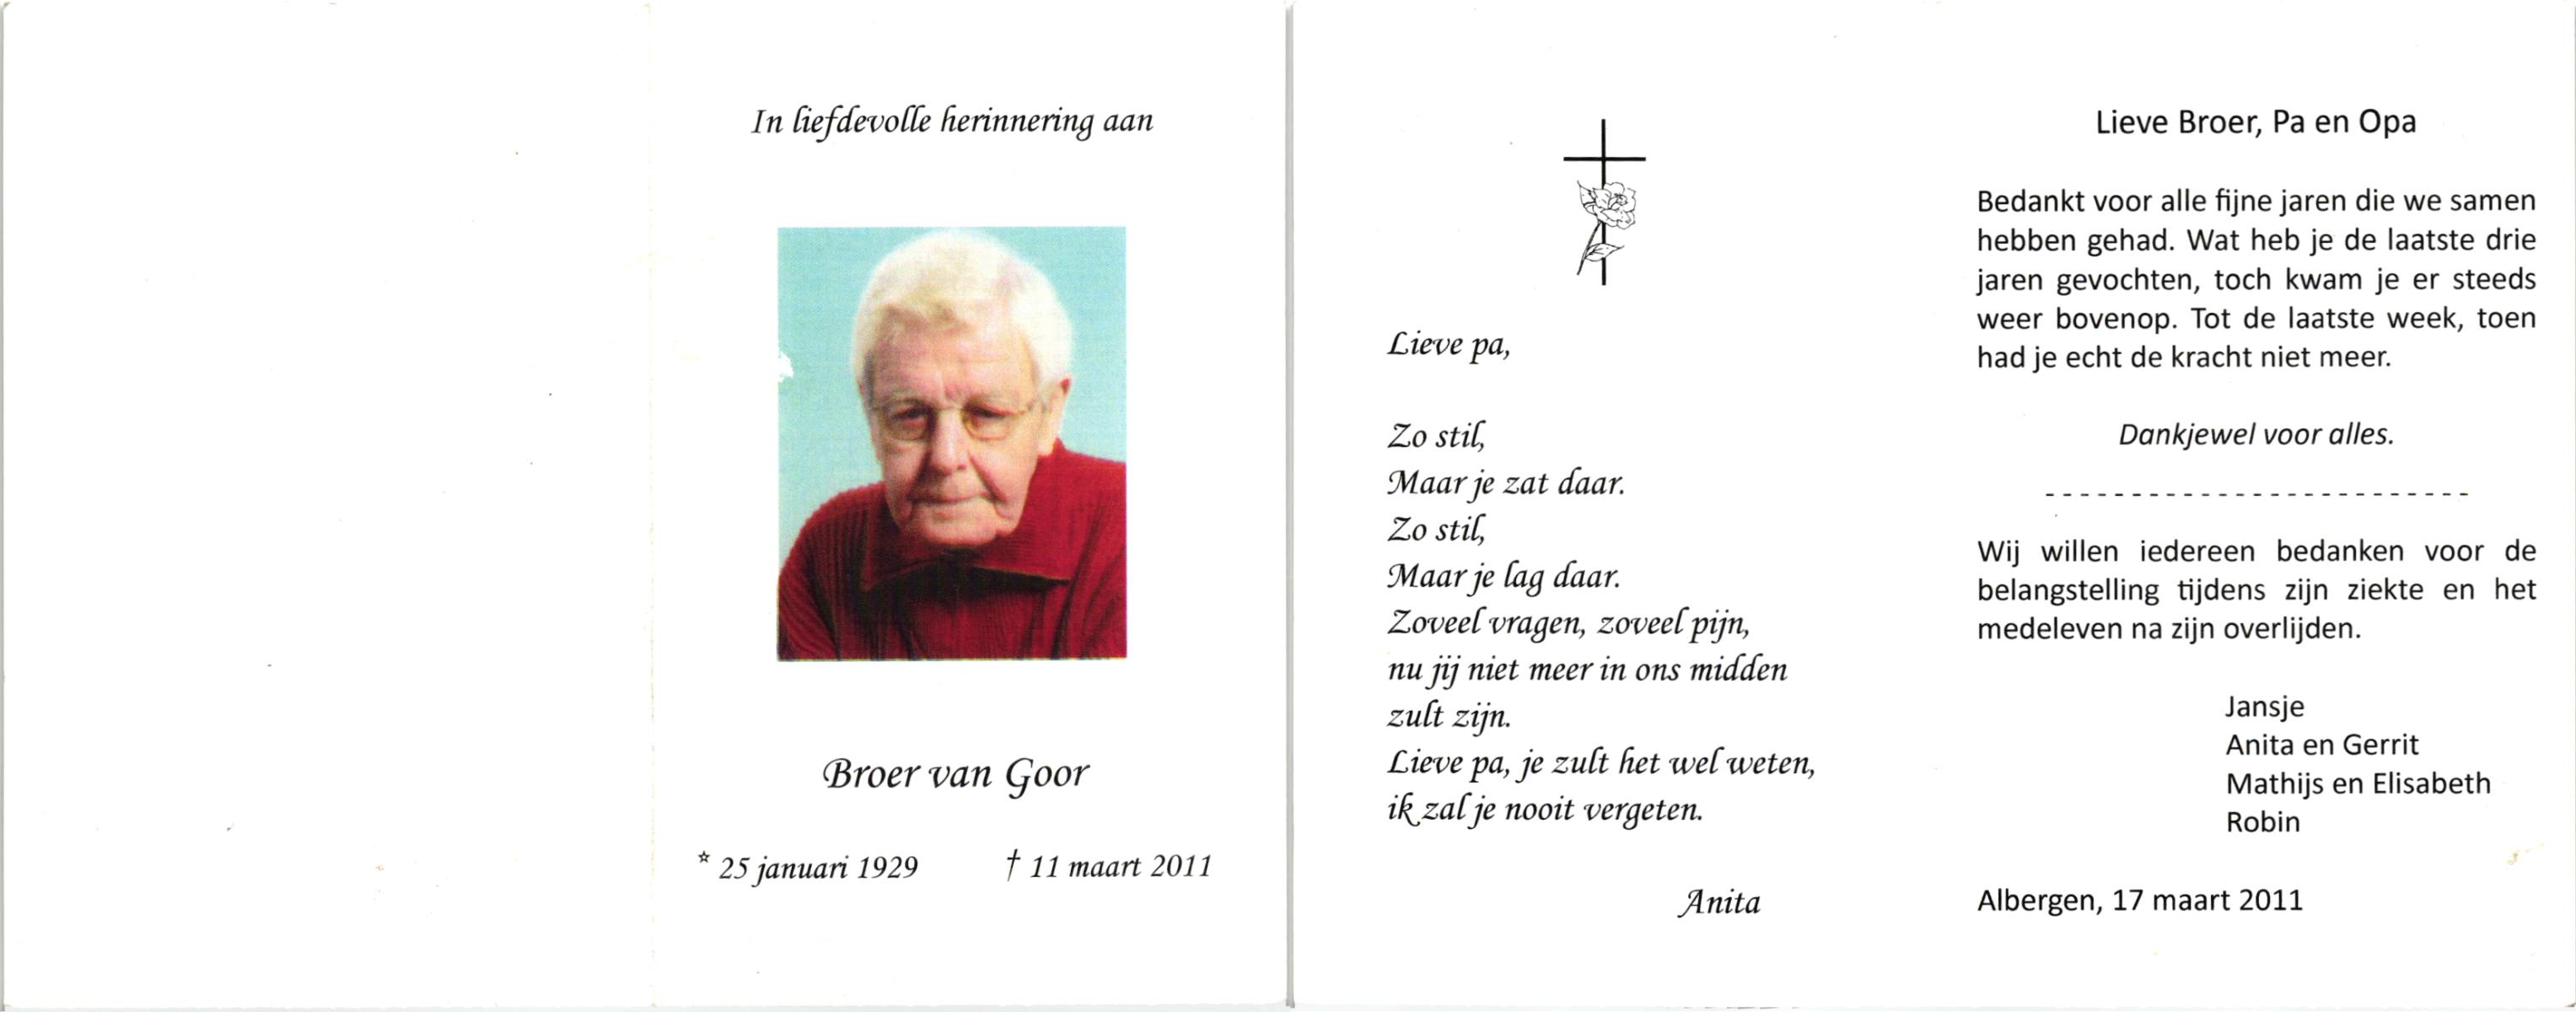 In liefdevolle herinnering aan
Broer van Goor
* 25 januari 1929 † 11 maart 2011
Lieve pa,
Zo stil,
Maar je zat daar.
Zo stil,
Maar je lag daar.
Zoveel vragen, zoveel pijn,
nu jij niet meer in ons midden
zult zijn.
Lieve pa, je zult het wel weten,
ik zal je nooit vergeten.
Anita
Lieve Broer, Pa en Opa
Bedankt voor alle fijne jaren die we samen
hebben gehad. Wat heb je de laatste drie
jaren gevochten, toch kwam je er steeds
weer bovenop. Tot de laatste week, toen
had je echt de kracht niet meer.
Dankjewel voor alles.
- - - - - - - - - - - - - - - - - - - - - - - - -
Wij willen iedereen bedanken voor de
belangstelling tijdens zijn ziekte en het
medeleven na zijn overlijden.
Jansje
Anita en Gerrit
Mathijs en Elisabeth
Robin
Albergen, 17 maart 2011